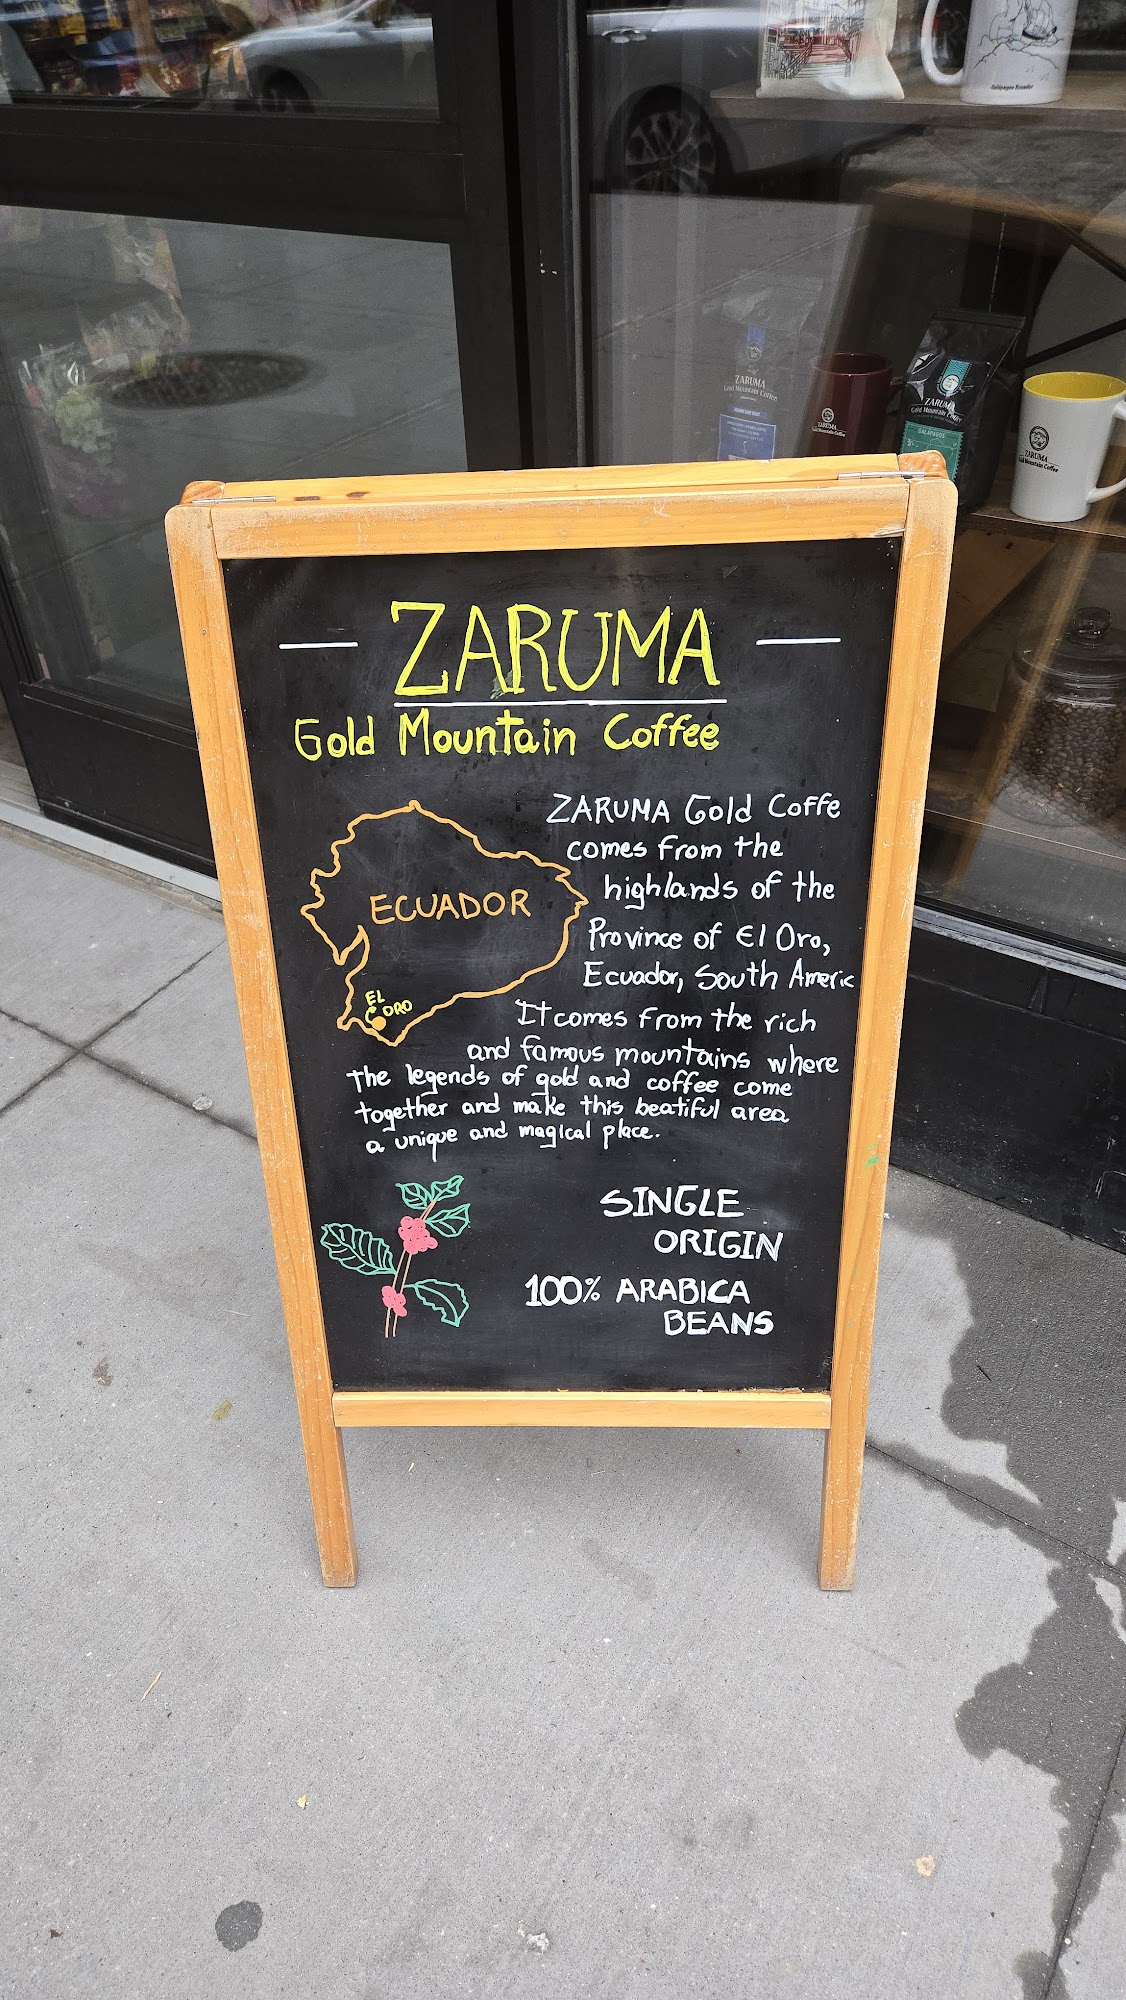 Galápagos Ecuador
ZARUMA
Gold Mountain Coffee
ZARUMA
Gold Mountain Coffee
ZARUMA
Gold Mountain Coffee
GALÁPAGOS
ZARUMA
Gold Mountain Coffee
ZARUMA
Gold Mountain Coffee
ECUADOR
EL
ORO
ZARUMA Gold Coffe
comes from the
highlands of the
Province of El Oro,
Ecuador, South Americ
It comes from the rich
and famous mountains where
the legends of gold and coffee come
together and make this beatiful area
a unique and magical place.
SINGLE
ORIGIN
100% ARABICA
BEANS